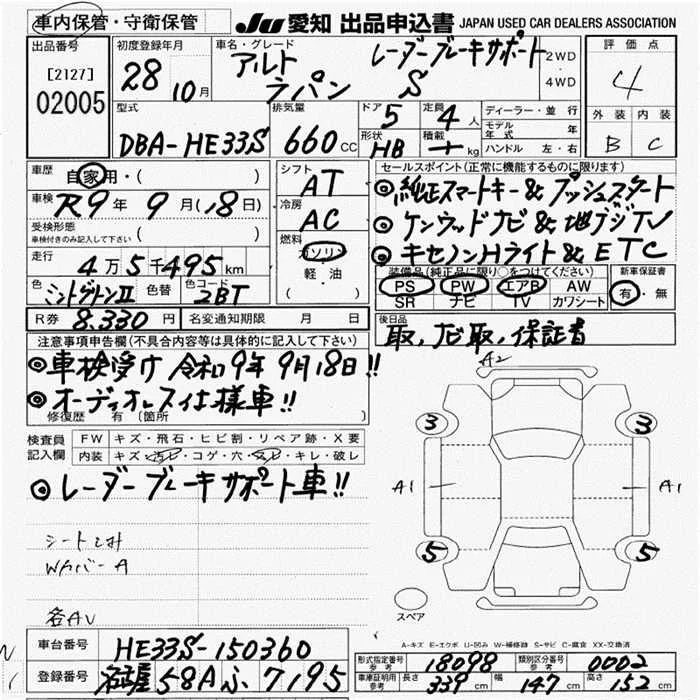 車内保管・守衛保管
JU 愛知 出品申込書 JAPAN USED CAR DEALERS ASSOCIATION
出品番号 [2127] 02005
初度登録年月 28 10月
車名・グレード アルト ラパン レーダーブレーキサポート S
2WD ・ 4WD
評価点 4
外装 内装
B C
型式 DBA-HE33S
排気量 660 CC
ドア 5 定員 4 人
形状 HB 積載 kg
ディーラー・並行
モデル年式 年
ハンドル 左・右
車歴 自家用・( )
車検 R9年 9月(18日)
受検形態 車検付きのみ記入して下さい ( )
走行 4万5千495km
色 ミントグリーンII 色替 色コード ZBT
シフト AT
冷房 AC
燃料 ガソリン 軽・油 ( )
R券 8,330円 名変通知期限 月 日
セールスポイント(正常に機能するものに限ります)
◎純正スマートキー&プッシュスタート
◎ケンウッドナビ&地デジTV
◎キセノンHライト&ETC
装備品(純正品に限り○をつけてください) 新車保証書
PS PW エアB AW 有・無
SR ナビ TV カワシート
後日品 取,ナビ取,保証書
注意事項申告欄(不具合内容等は具体的に記入して下さい)
◎車検受け 令和9年9月18日!!
◎オーディオレス仕様車!!
修復歴 有 (箇所 )
検査員記入欄 FW キズ・飛石・ヒビ割・リペア跡・X要
内装 キズ・汚レ・コゲ・穴・スレ・キレ・破レ
◎レーダーブレーキサポート車!!
WカバーA
各AU
A2
3 3
A1 A1
5 5
スペア
A-キズ E-エクボ U-凹み W-補修跡 S-サビ C-腐食 XX-交換済
車台番号 HE33S-150360
登録番号 名古屋 58A ふ 7195
形式指定番号 参考 18098 類別区分番号 参考 0002
車庫証明用 参考 長さ 339cm 幅 147cm 高さ 152cm